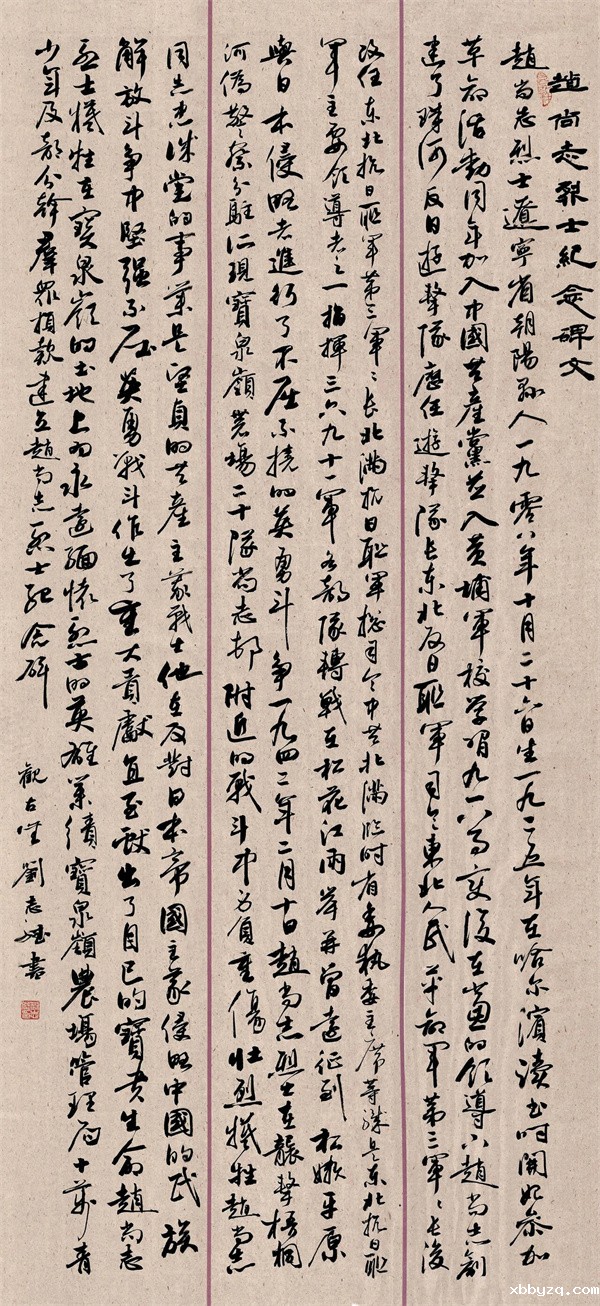 趙尚志烈士紀念碑文
趙尚志烈士遼寧省朝陽縣人一九零八年十月二十六日生一九二五年在哈尔濱讀书时開始参加
革命活動同年加入中國共產黨並入黄埔軍校学習九一八事变後在黨的領導下趙尚志創
建了珠河反日遊擊隊歷任遊擊隊长东北反日联軍司令東北人民革命軍第三軍軍长後
改任东北抗日联軍第三軍軍长北滿抗日联軍總司令中共北滿临时省委執委主席等職是东北抗日联
軍主要領導者之一指揮三六九十一軍各部隊轉戰在松花江兩岸並曾遠征到松嫩平原
與日本侵略者進行了不屈不撓的英勇斗争一九四二年二月十二日趙尚志烈士在襲擊梧桐
河偽警察分駐所現寶泉嶺農場二十隊尚志邨附近的戰斗中为負重傷壯烈犧牲趙尚志
同志忠誠党的事業是坚貞的共產主義戰士他在反對日本帝國主義侵略中國的民族
解放斗争中堅强不屈英勇戰斗作出了重大貢獻直至獻出了自己的寶贵生命趙尚志
烈士犧牲在寶泉嶺的土地上为永遠緬懷烈士的英雄業績寶泉嶺農場管理局十萬青
少年及部分幹群眾捐款建立趙尚志烈士紀念碑
觀古堂劉志 書
www.xbbyzq.com